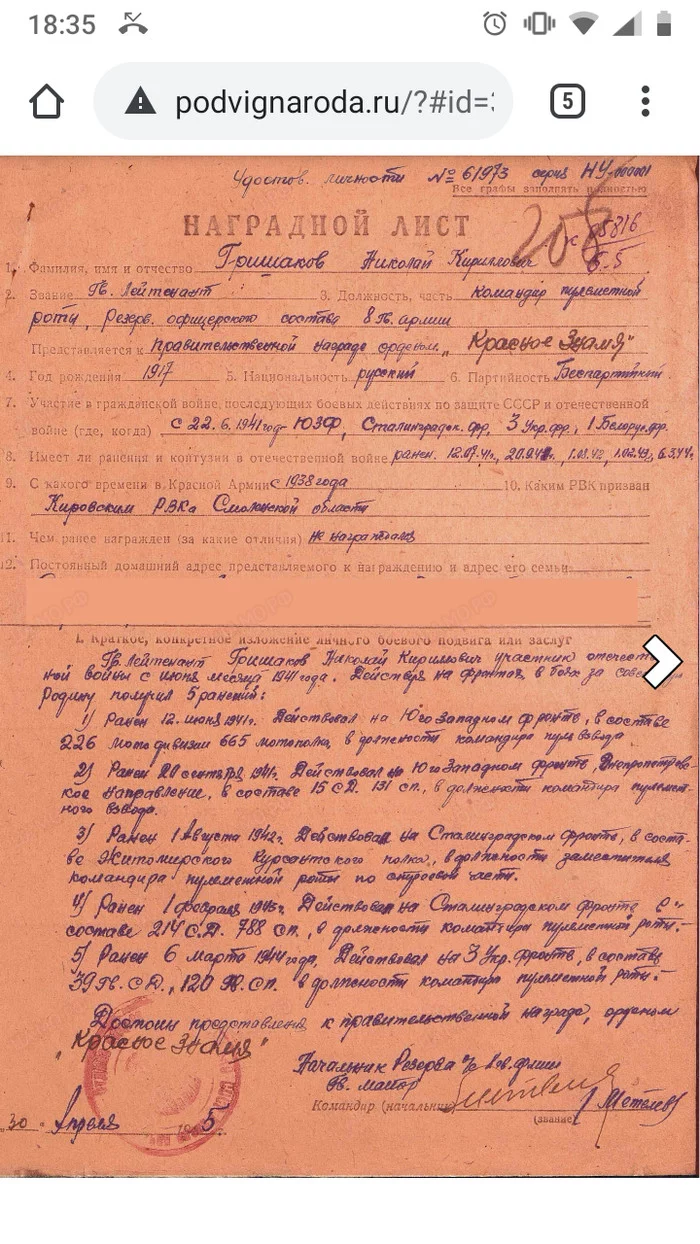 18:35
podvignaroda.ru/?#id=
5
Удостов. личности № 61973 серия НУ-000001
Все графы заполнять полностью
НАГРАДНОЙ ЛИСТ
208
1. Фамилия, имя и отчество Гришаков Николай Кириллович
2. Звание Гв. Лейтенант 3. Должность, часть командир пулеметной
роты, Резерв. офицерского состава 8 гв. армии
Представляется к правительственной награде орденом „Красное Знамя"
4. Год рождения 1917 5. Национальность русский 6. Партийность Беспартийный
7. Участие в гражданской войне, последующих боевых действиях по защите СССР и отечественной
войне (где, когда) с 22.6.1941 год- ЮЗФ, Сталинградск. фр, 3 Укр. фр., 1 Белорус. фр.
8. Имеет ли ранения и контузии в отечественной войне ранен. 12.07.41г.,
9. С какого времени в Красной Армии с 1938 года 10. Каким РВК призван
Кировским РВКа Смоленской области
11. Чем ранее награжден (за какие отличия) не награждался
12. Постоянный домашний адрес представляемого к награждению и адрес его семьи
I. Краткое, конкретное изложение личного боевого подвига или заслуг
Гв. Лейтенант Гришаков Николай Кириллович участник отечествен-
ной войны с июня месяца 1941 года. Действуя на фронтах, в боях за
Родину получил 5 ранений:
1) Ранен 12. июня 1941г. Действовал на Юго Западном фронте, в составе
226 мото дивизии 665 мотополка, в должности командира пульвзвода
2) Ранен 20 сентября 1941г. Действовал на Юго Западном фронте, Днепропетровс-
кое направление, в составе 15 С.Д. 131 сп., в должности командира пулемет-
ного взвода.
3) Ранен 1 Августа 1942г. Действовал на Сталинградском фронте, в соста-
ве Житомирского Курсантского полка, в должности заместителя
командира пулеметной роты по строевой части.
4) Ранен 1 февраля 1943г. Действовал на Сталинградском фронте в
составе 214 С.Д. 788 сп., в должности командира пулеметной роты.-
5) Ранен 6 марта 1944 года, Действовал на 3 Укр. фронте, в составе
39 Гв. С.Д., 120 сп. в должности командира пулеметной роты.-
Достоин представления к правительственной награде, орденом
„Красное Знамя"
Начальник Резерва
Гв. майор
Командир (начальник
(звание)
„30" Апреля 5